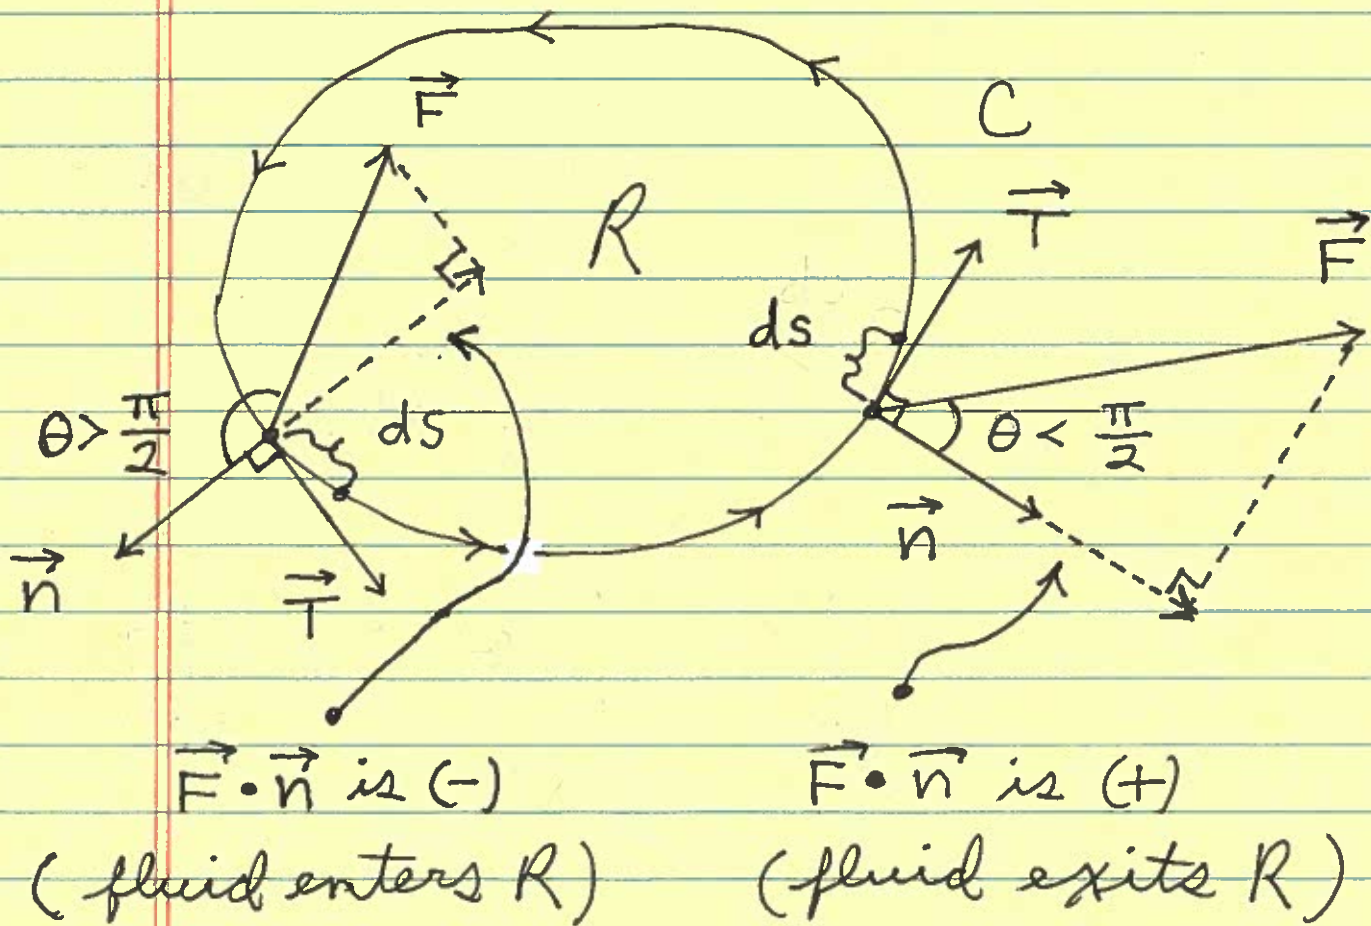 F⃗
C
R
T⃗
F⃗
ds
θ > π/2
ds
θ < π/2
n⃗
n⃗
T⃗
F⃗ • n⃗ is (−)
F⃗ • n⃗ is (+)
(fluid enters R)
(fluid exits R)